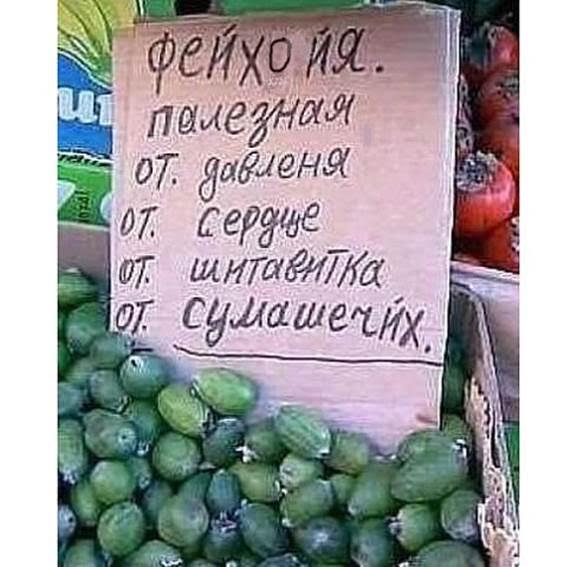 фейхо йя.
палезная
от. давленя
от. сердце
от. шитавитка
от. сумашечйх.